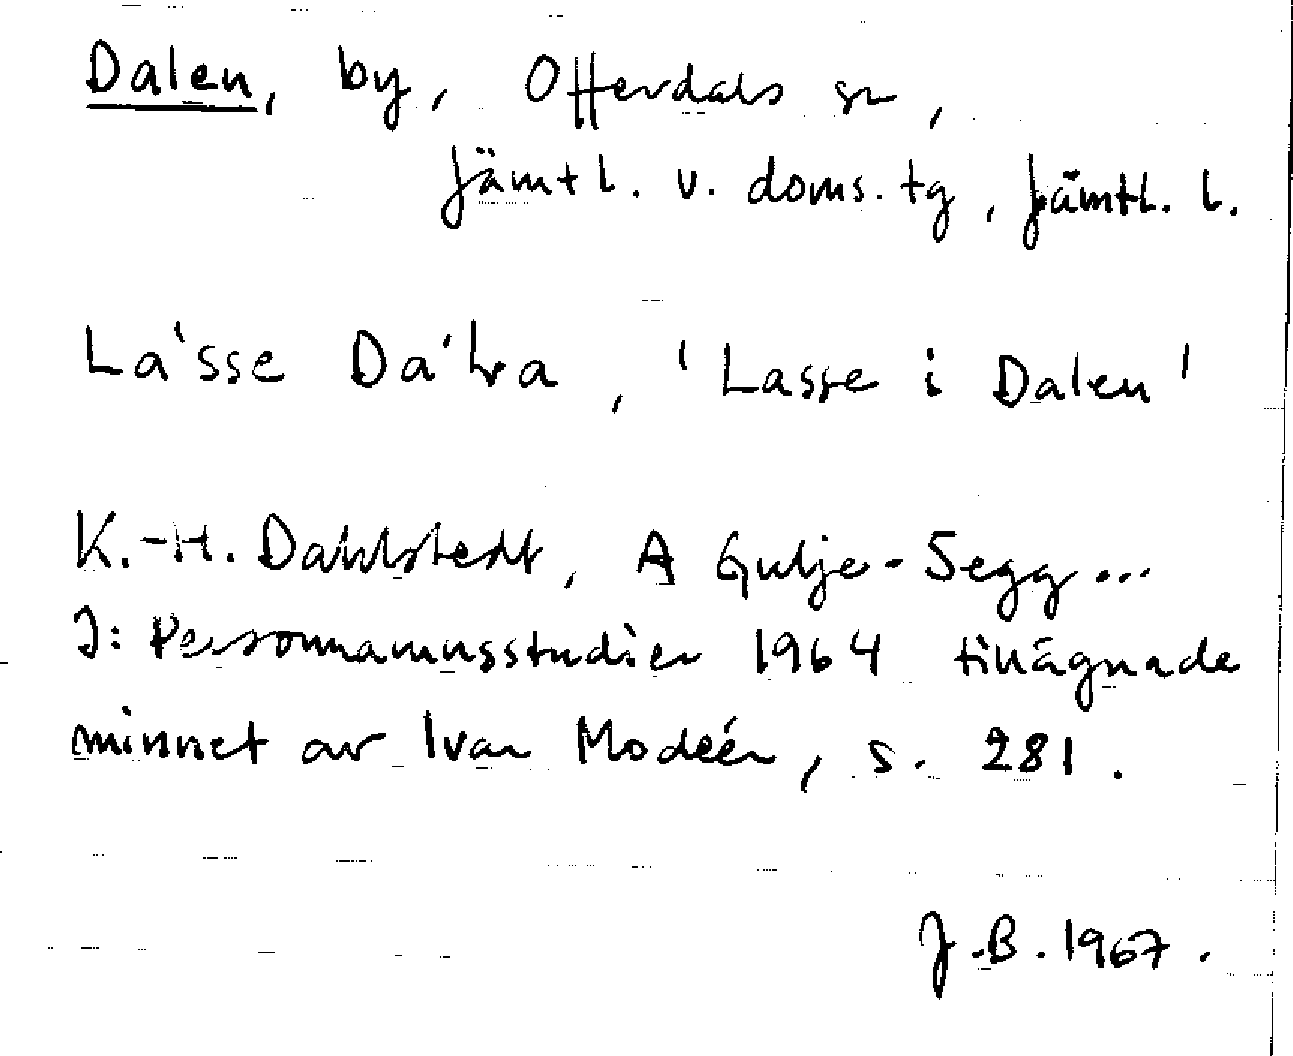 Dalen, by, Offerdals sn,
Jämtl. v. doms. tg, Jämtl. l.
La'sse Da'lra, 'Lasse i Dalen'
K.-H. Dahlstedt, A Gulje-Segg...
I: Personnamnsstudier 1964 tillägnade
minnet av Ivar Modéér, s. 281.
J.B. 1967.